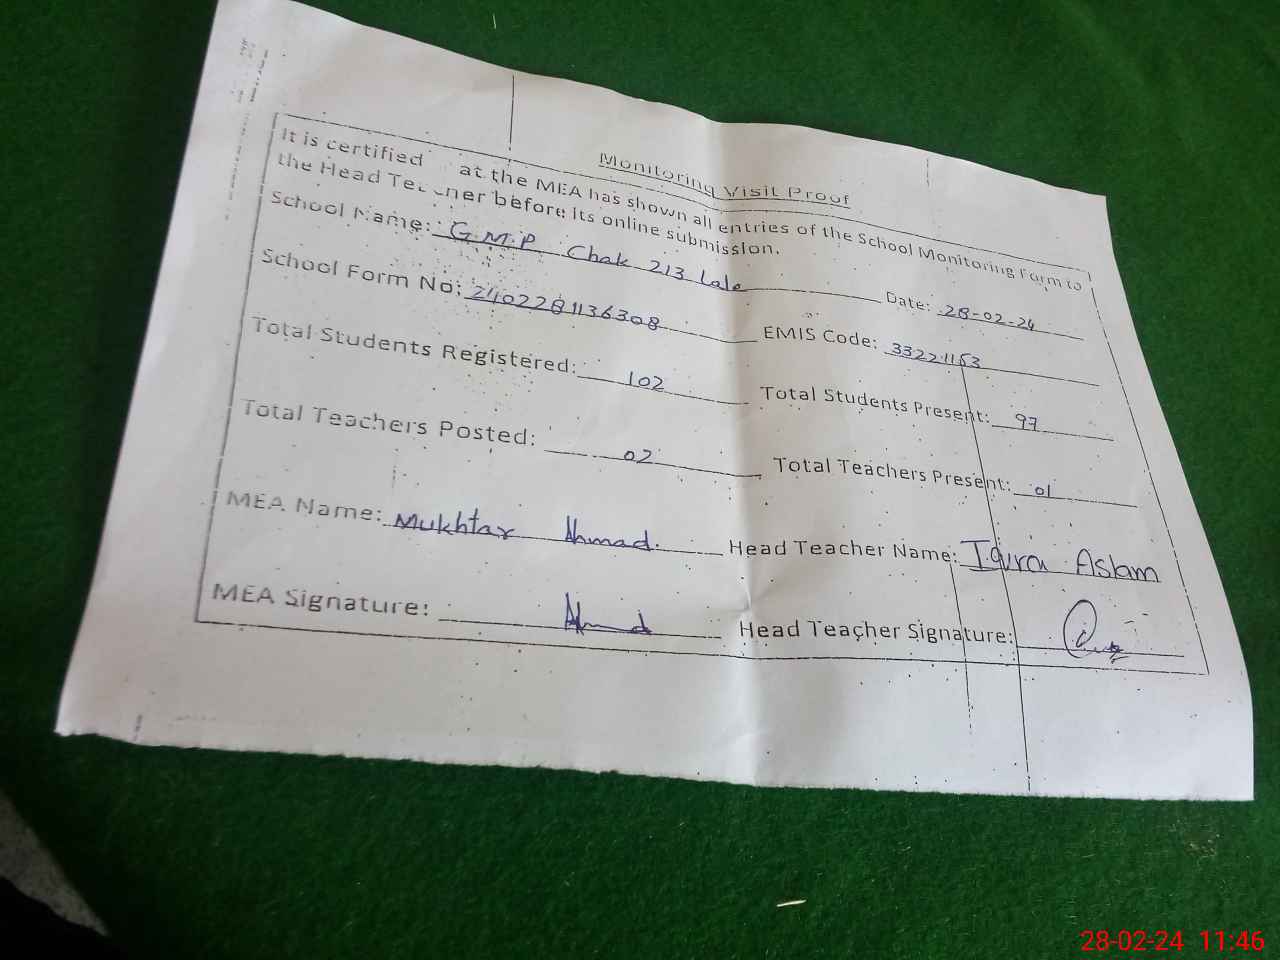 Monitoring Visit Proof
It is certified at the MEA has shown all entries of the School Monitoring Form to
the Head Teacher before its online submission.
School Name: G.M.P Chak 213 Lale Date: 28-02-24
School Form No: 2402281136308 EMIS Code: 33221153
Total Students Registered: 102 Total Students Present: 97
Total Teachers Posted: 02 Total Teachers Present: 01
MEA Name: Mukhtar Ahmad. Head Teacher Name: Iqura Aslam
MEA Signature: Ahmad Head Teacher Signature:
28-02-24 11:46